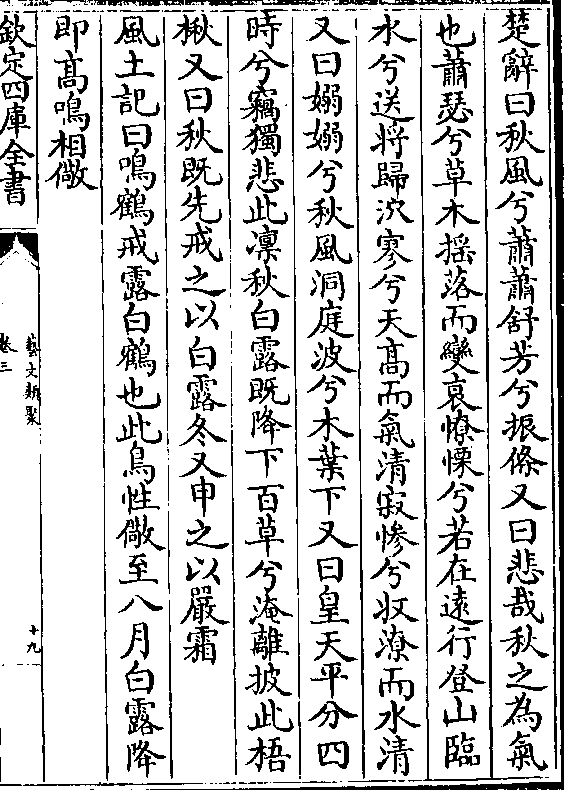 楚辭曰秋風兮蕭蕭舒芳兮振條又曰悲哉秋之為氣
也蕭瑟兮草木摇落而變衰憭慄兮若在逺行登山臨
水兮送将歸泬寥兮天髙而氣清寂㦧兮収潦而水清
又曰嫋嫋兮秋風洞庭波兮木葉下又曰皇天平分四
時兮竊獨悲此凛秋白露既降下百草兮淹離披此梧
楸又曰秋既先戒之以白露冬又申之以嚴霜
風土記曰鳴鶴戒露白鶴也此鳥性儆至八月白露降
即髙鳴相儆
欽定四庫全書
藝文類聚
卷三
十九